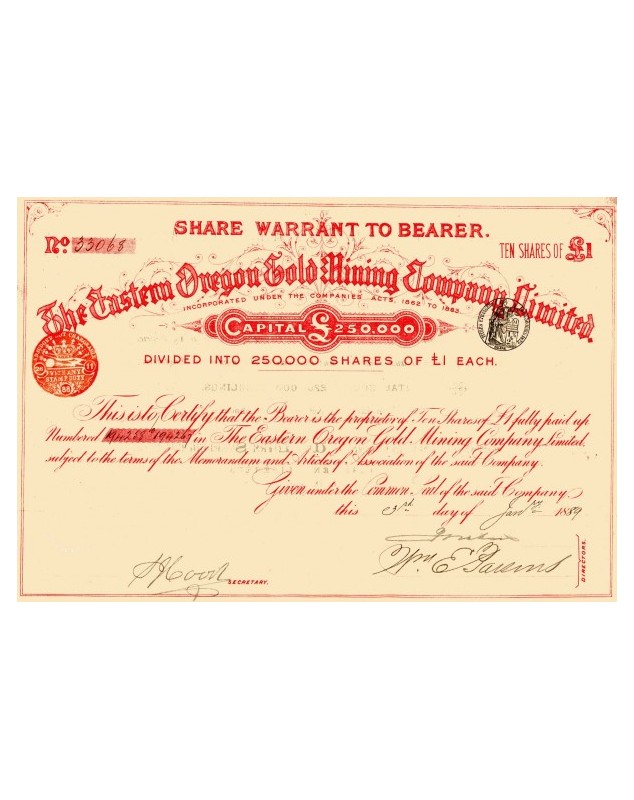 SHARE WARRANT TO BEARER.
No. 33068
TEN SHARES OF £1
The Eastern Oregon Gold Mining Company Limited.
INCORPORATED UNDER THE COMPANIES ACTS, 1862 TO 1883.
CAPITAL £250,000
DIVIDED INTO 250,000 SHARES OF £1 EACH.
This is to Certify that the Bearer is the proprietor of Ten Shares of £1 fully paid up
Numbered in The Eastern Oregon Gold Mining Company Limited,
subject to the terms of the Memorandum and Articles of Association of the said Company.
Given under the Common Seal of the said Company.
this 3rd day of Jany 1889
Wm. E. Parsons
DIRECTORS.
SECRETARY.